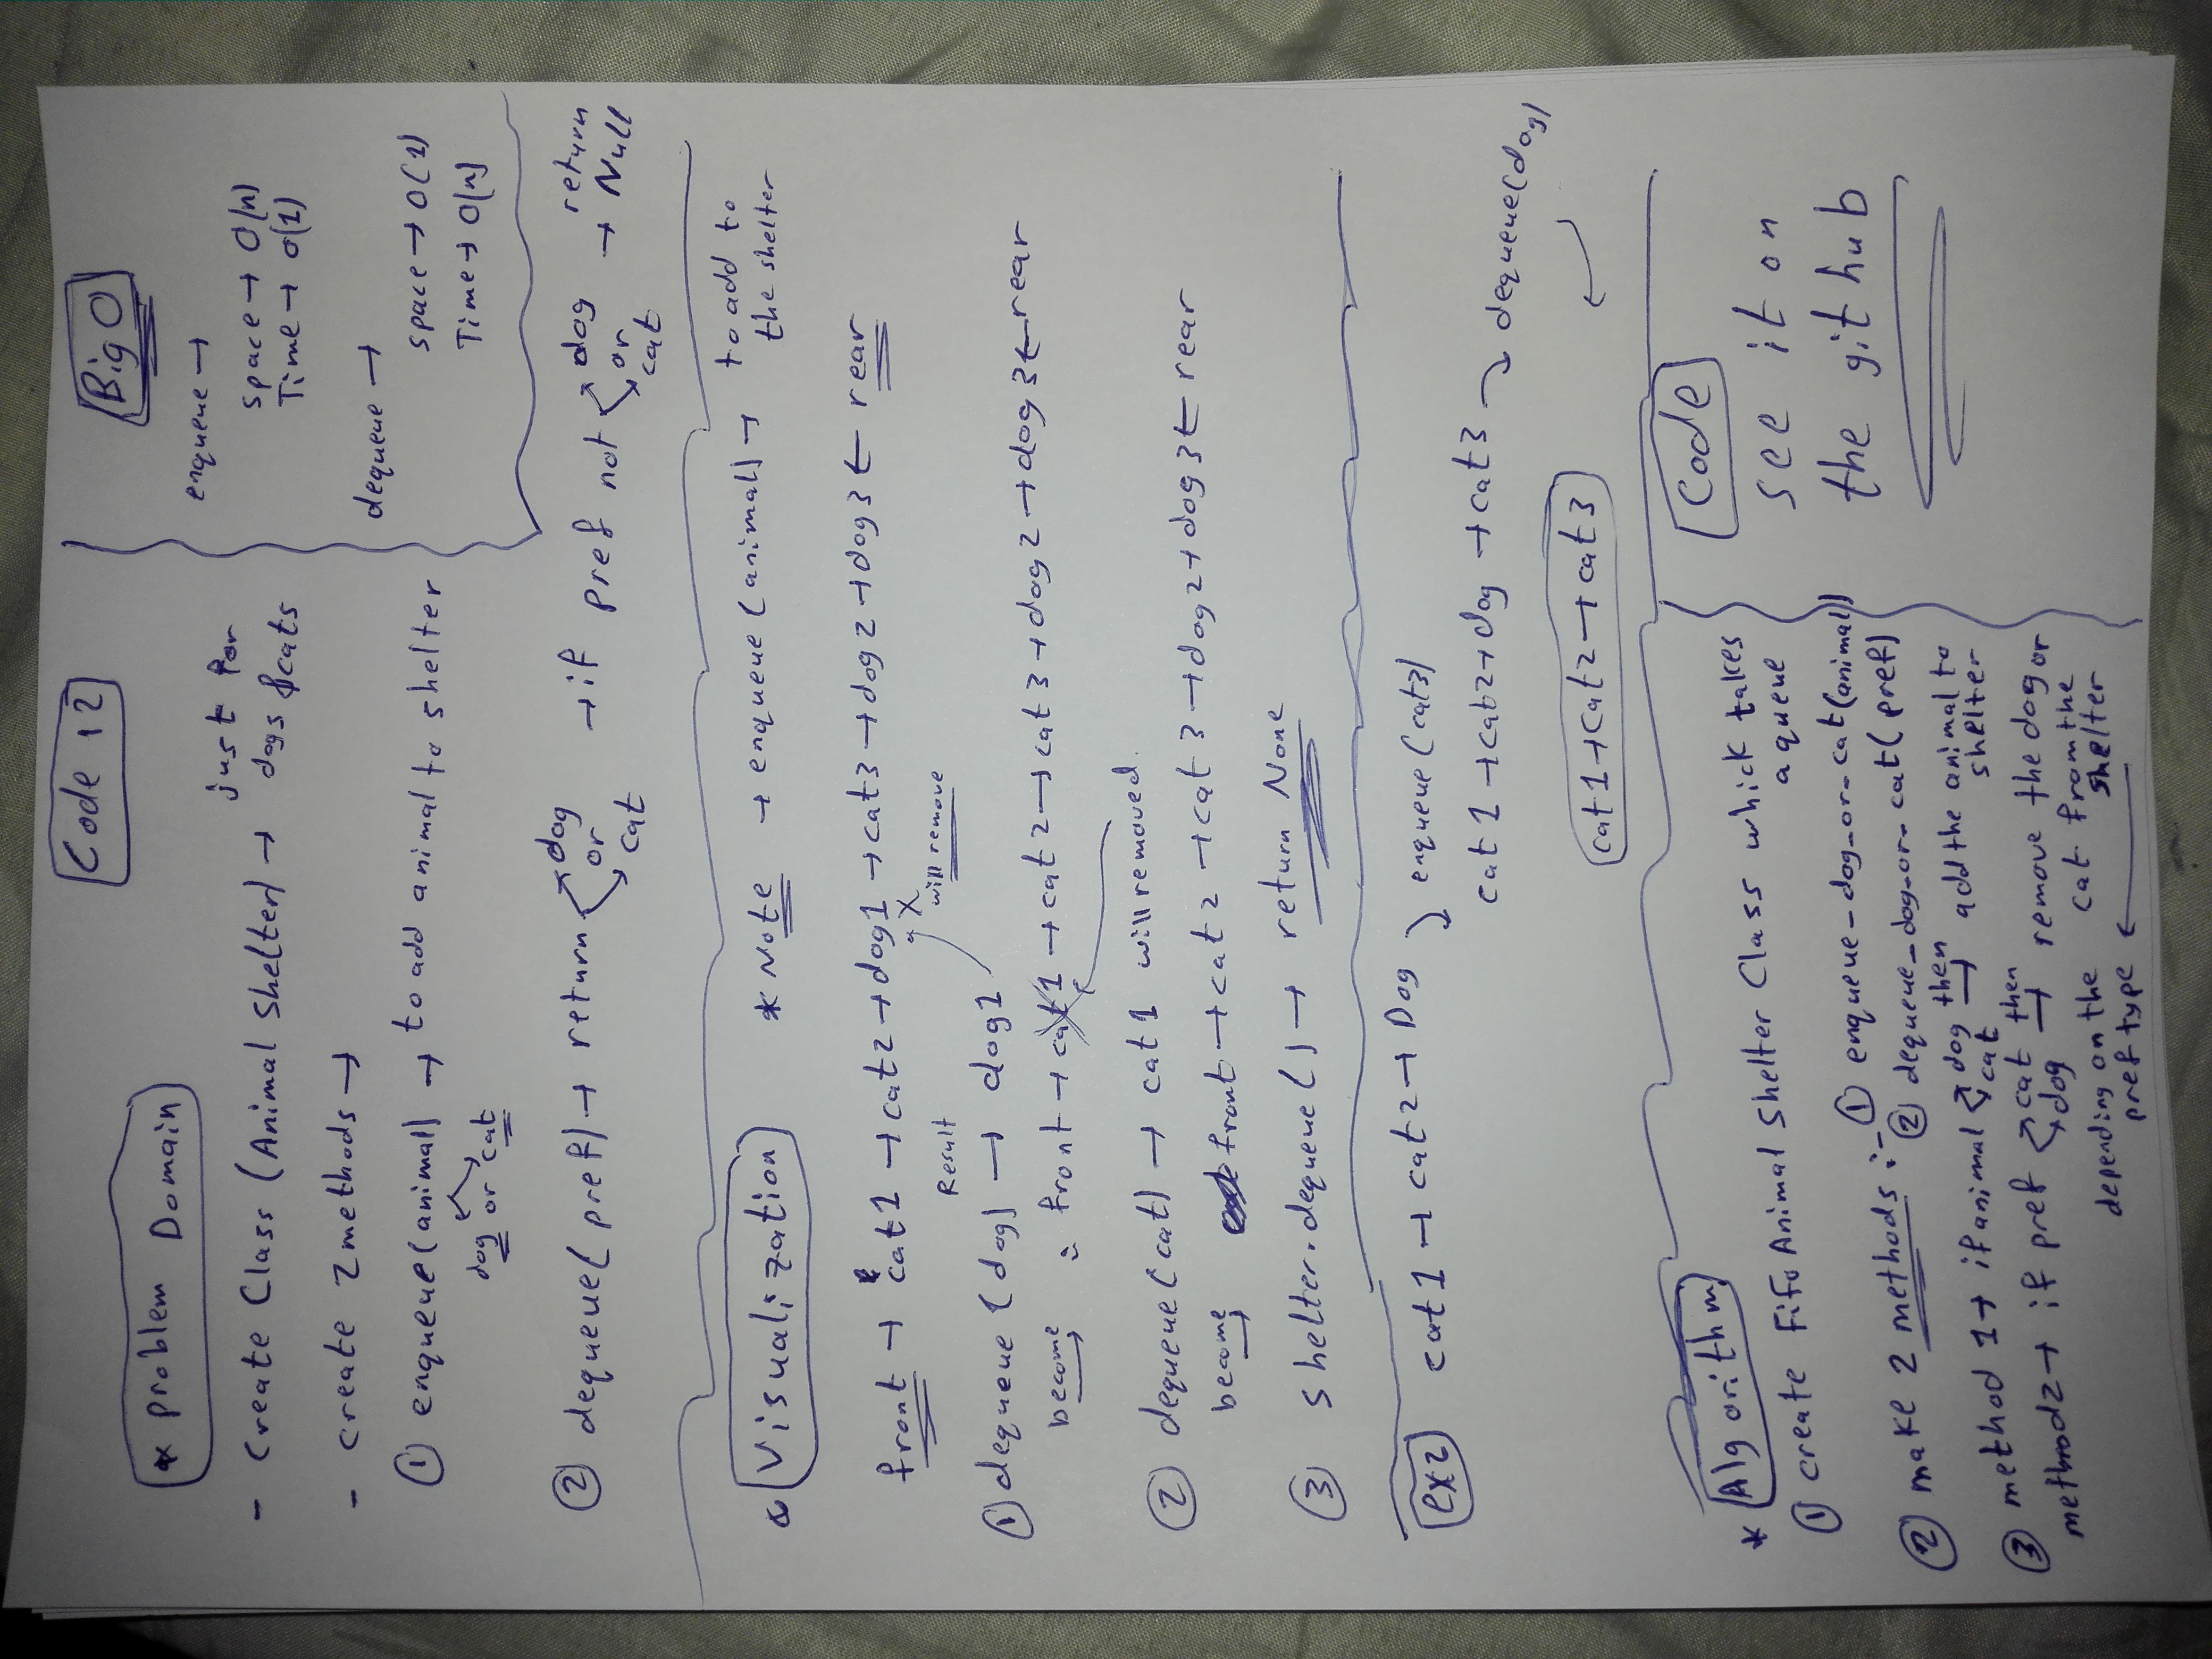 Code 12
* Problem Domain
- Create Class (Animal Shelter) → just for dogs & cats
- create 2 methods →
① enqueue(animal) → to add animal to shelter
dog or cat
② dequeue(pref) → return dog or cat → if pref not dog or cat → return Null
Big O
enqueue →
space → O(n)
Time → O(1)
dequeue →
space → O(1)
Time → O(n)
Visualization
* Note → enqueue(animal) → to add to the shelter
front → cat1 → cat2 → dog1 → cat3 → dog2 → dog3 ← rear
x will remove
Result
① dequeue(dog) → dog1
become : front → cat1 → cat2 → cat3 → dog2 → dog3 ← rear
② dequeue(cat) → cat1 will removed
become front → cat2 → cat3 → dog2 → dog3 ← rear
③ shelter.dequeue() → return None
ex2
cat1 → cat2 → Dog enqueue(cat3)
cat1 → cab2 → dog → cat3 dequeue(dog)
cat1 → cat2 → cat3
* Algorithm
① create Fifo Animal Shelter Class which takes a queue
② make 2 methods :- ① enqueue-dog-or-cat(animal)
② dequeue-dog-or-cat(pref)
③ method 1 → if animal dog cat then → add the animal to shelter
method2 → if pref cat dog then → remove the dog or cat from the shelter
depending on the pref type
Code
see it on
the github